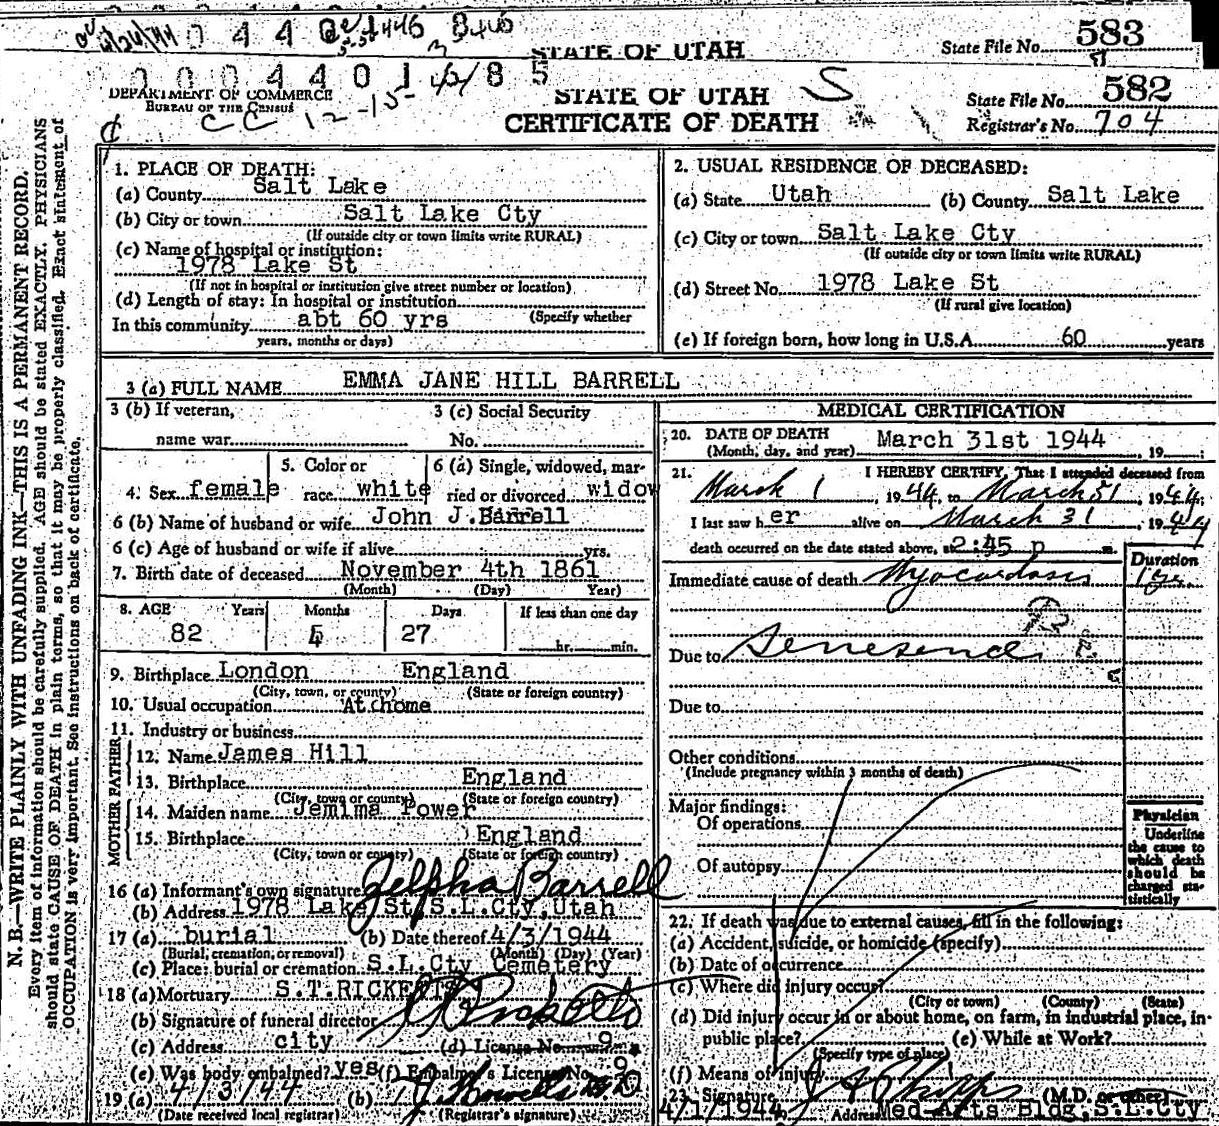 STATE OF UTAH State File No. 583
0 0 0 4 4 0 1 8 5
DEPARTMENT OF COMMERCE
BUREAU OF THE CENSUS
STATE OF UTAH
CERTIFICATE OF DEATH
State File No. 582
Registrar's No. 704
N. B.—WRITE PLAINLY WITH UNFADING INK—THIS IS A PERMANENT RECORD.
Every item of information should be carefully supplied. AGE should be stated EXACTLY. PHYSICIANS
should state CAUSE OF DEATH in plain terms, so that it may be properly classified. Exact statement of
OCCUPATION is very important. See instructions on back of certificate.
1. PLACE OF DEATH:
(a) County Salt Lake
(b) City or town Salt Lake Cty
(If outside city or town limits write RURAL)
(c) Name of hospital or institution:
1978 Lake St
(If not in hospital or institution give street number or location)
(d) Length of stay: In hospital or institution
(Specify whether
In this community abt 60 yrs
years, months or days)
2. USUAL RESIDENCE OF DECEASED:
(a) State Utah (b) County Salt Lake
(c) City or town Salt Lake Cty
(If outside city or town limits write RURAL)
(d) Street No. 1978 Lake St
(If rural give location)
(e) If foreign born, how long in U.S.A. 60 years
3 (a) FULL NAME EMMA JANE HILL BARRELL
3 (b) If veteran, name war
3 (c) Social Security No.
4. Sex female
5. Color or race white
6 (a) Single, widowed, married or divorced widow
6 (b) Name of husband or wife John J.Barrell
6 (c) Age of husband or wife if alive yrs.
7. Birth date of deceased November 4th 1861
(Month) (Day) Year)
8. AGE Years Months Days If less than one day
82 4 27 hr. min.
9. Birthplace London England
(City, town, or county) (State or foreign country)
10. Usual occupation At home
11. Industry or business
FATHER
12. Name James Hill
13. Birthplace England
(City, town or county) (State or foreign country)
MOTHER
14. Maiden name Jemima Power
15. Birthplace England
(City, town or county) (State or foreign country)
16 (a) Informant's own signature Zelpha Barrell
(b) Address 1978 Lake St, S.L.Cty,Utah
17 (a) burial (b) Date thereof 4/3/1944
(Burial, cremation, or removal) (Month) (Day) (Year)
(c) Place: burial or cremation S.L.Cty Cemetery
18 (a) Mortuary S.T.RICKETTS
(b) Signature of funeral director Ricketts
(c) Address city (d) License No. 9
(e) Was body embalmed? yes (f) Embalmer's License No. 9
19 (a) 4/3/44 (b)
(Date received local registrar) (Registrar's signature)
MEDICAL CERTIFICATION
20. DATE OF DEATH March 31st 1944, 19
(Month, day, and year)
21. I HEREBY CERTIFY, That I attended deceased from
March 1, 1944, to March 31, 1944;
I last saw h er alive on March 31, 1944
death occurred on the date stated above, at 2:45 p m.
Duration
Immediate cause of death Myocardosis 1 yr.
Due to
Due to
Other conditions
(Include pregnancy within 3 months of death)
Major findings:
Of operations
Of autopsy
Physician
Underline
the cause to
which death
should be
charged statistically
22. If death was due to external causes, fill in the following:
(a) Accident, suicide, or homicide (specify)
(b) Date of occurrence
(c) Where did injury occur?
(City or town) (County) (State)
(d) Did injury occur in or about home, on farm, in industrial place, in public place? (e) While at Work?
(Specify type of place)
(f) Means of injury
23. Signature (M.D. or other)
4/1/1944 Address Med-Arts Bldg,S.L.Cty